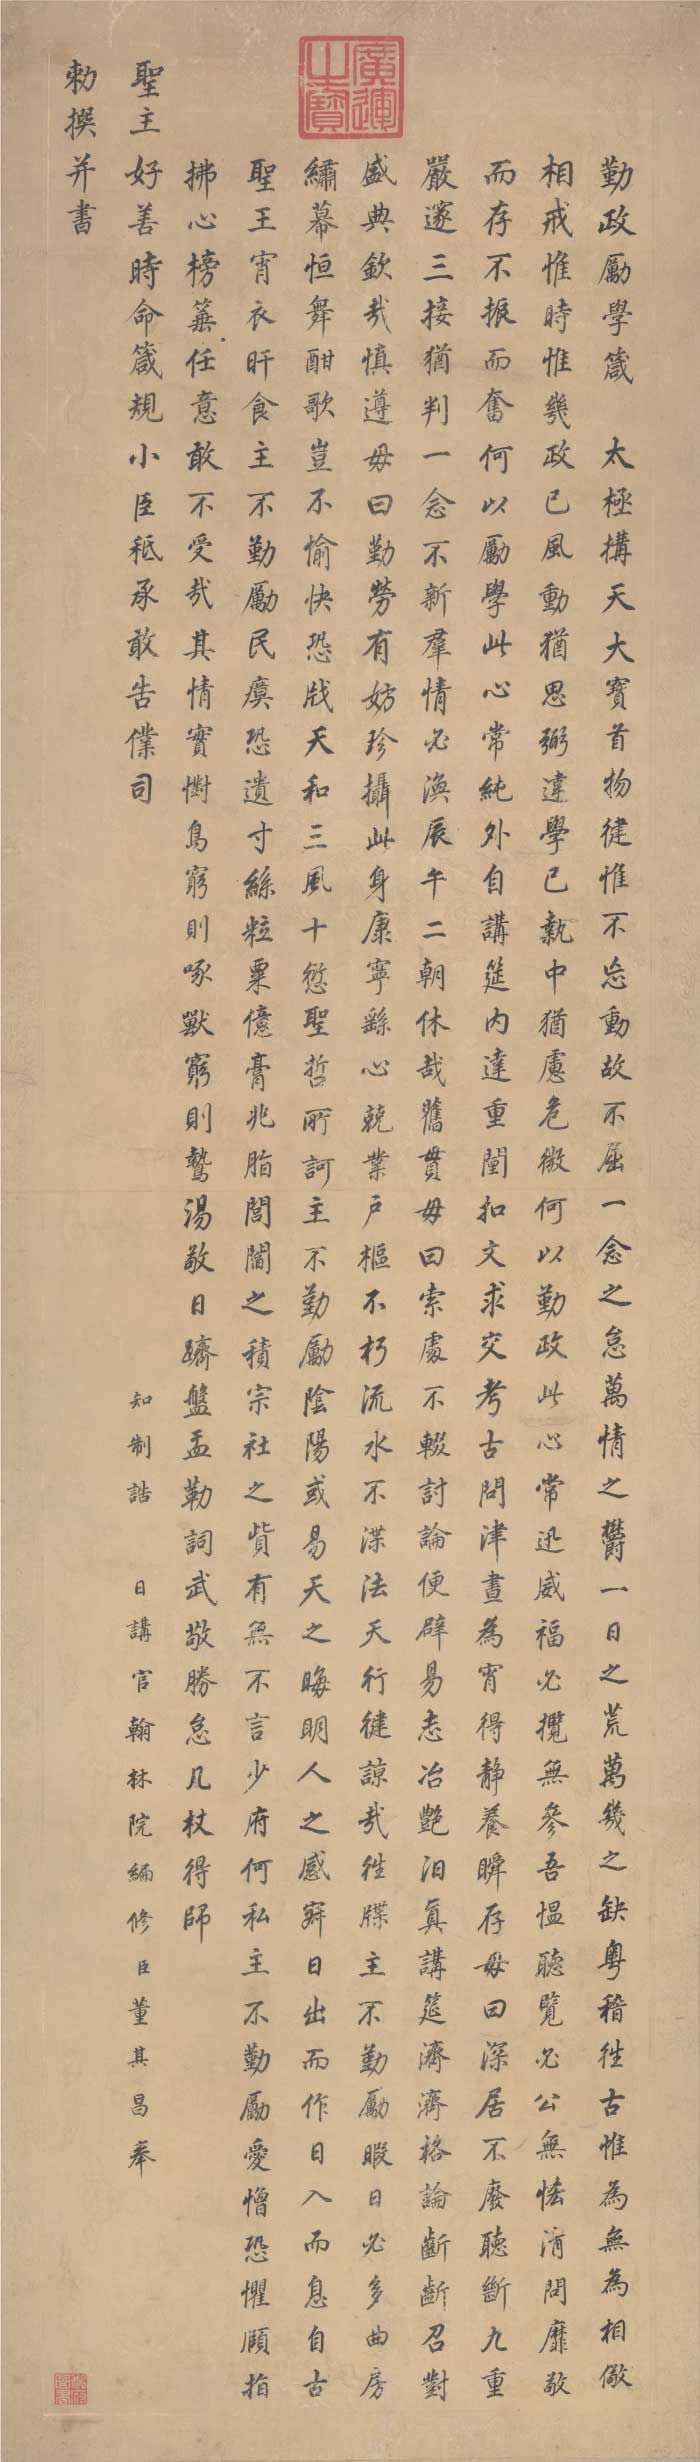 廣運之寶
勤政勵學箴　太極搆天大寶首物健惟不忘動故不屈一念之怠萬情之欝一日之荒萬幾之缺粵稽徃古惟為無為相儆
相戒惟時惟幾政已風動猶思弼違學已執中猶慮危微何以勤政此心常迅威福必攬無參吾愠聽覽必公無恡清問靡敬
而存不振而奮何以勵學此心常純外自講筵內達重闈扣文求交考古問津晝為宵得靜養瞬存毋曰深居不廢聽斷九重
嚴邃三接猶判一念不新羣情必渙辰午二朝休哉舊貫毋曰索處不輟討論便辟易志冶艷汩真講筵濟濟格論齗齗召對
盛典欽哉慎遵毋曰勤勞有妨珍攝此身康寧繇心兢業戶樞不朽流水不渫法天行健諒哉徃牒主不勤勵暇日必多曲房
繡幕恒舞酣歌豈不愉快恐戕天和三風十愆聖哲所訶主不勤勵陰陽或易天之晦明人之感寐日出而作日入而息自古
聖王宵衣旰食主不勤勵民瘼恐遺寸絲粒粟億膏兆脂閭閻之積宗社之貲有無不言少府何私主不勤勵愛憎恐懼頤指
拂心榜箠任意敢不受哉其情實懟鳥窮則啄獸窮則驁湯敬日躋盤盂勒詞武敬勝怠几杖得師
聖主好善時命箴規小臣秪承敢告僕司　知制誥　日講官翰林院編修臣董其昌奉
勅撰并書